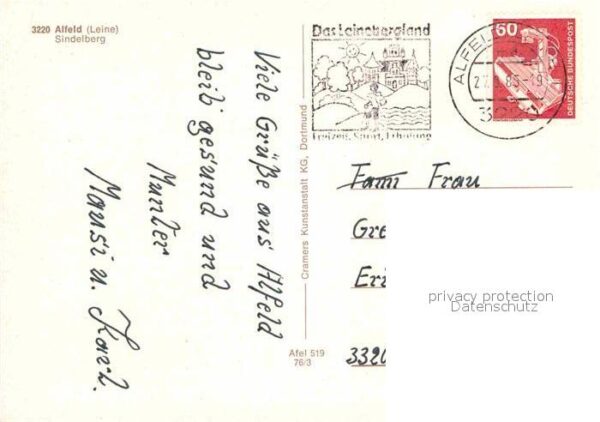 3220 Alfeld (Leine)
Sindelberg
Viele Grüße aus Alfeld
bleib gesund und
Munter
Mausi u. Karl.
Cramers Kunstanstalt KG, Dortmund
Afel 519
76/3
Das Leinebergland
Freizeit, Sport, Erholung
ALFELD
60
DEUTSCHE BUNDESPOST
Fam Frau
Gre
Eri
3320
privacy protection
Datenschutz